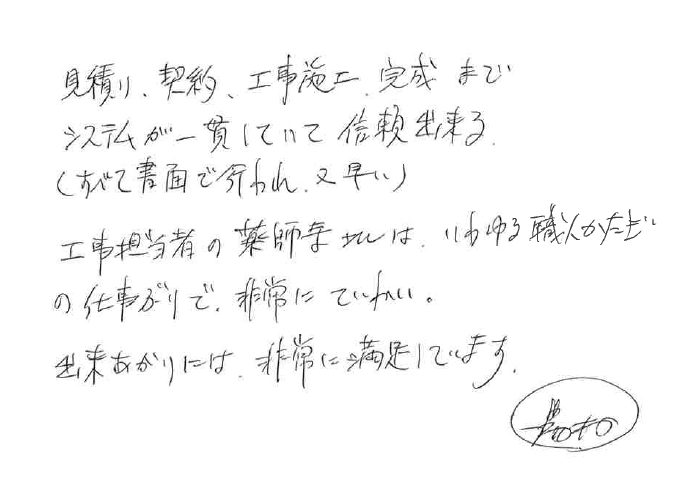 見積り、契約、工事施工、完成まで
システムが一貫していて信頼出来る。
(すべて書面で行われ、又早い)
工事担当者の薬師寺さんは、いわゆる職人かたぎ
の仕事ぶりで、非常にていねい。
出来あがりには、非常に満足しています。